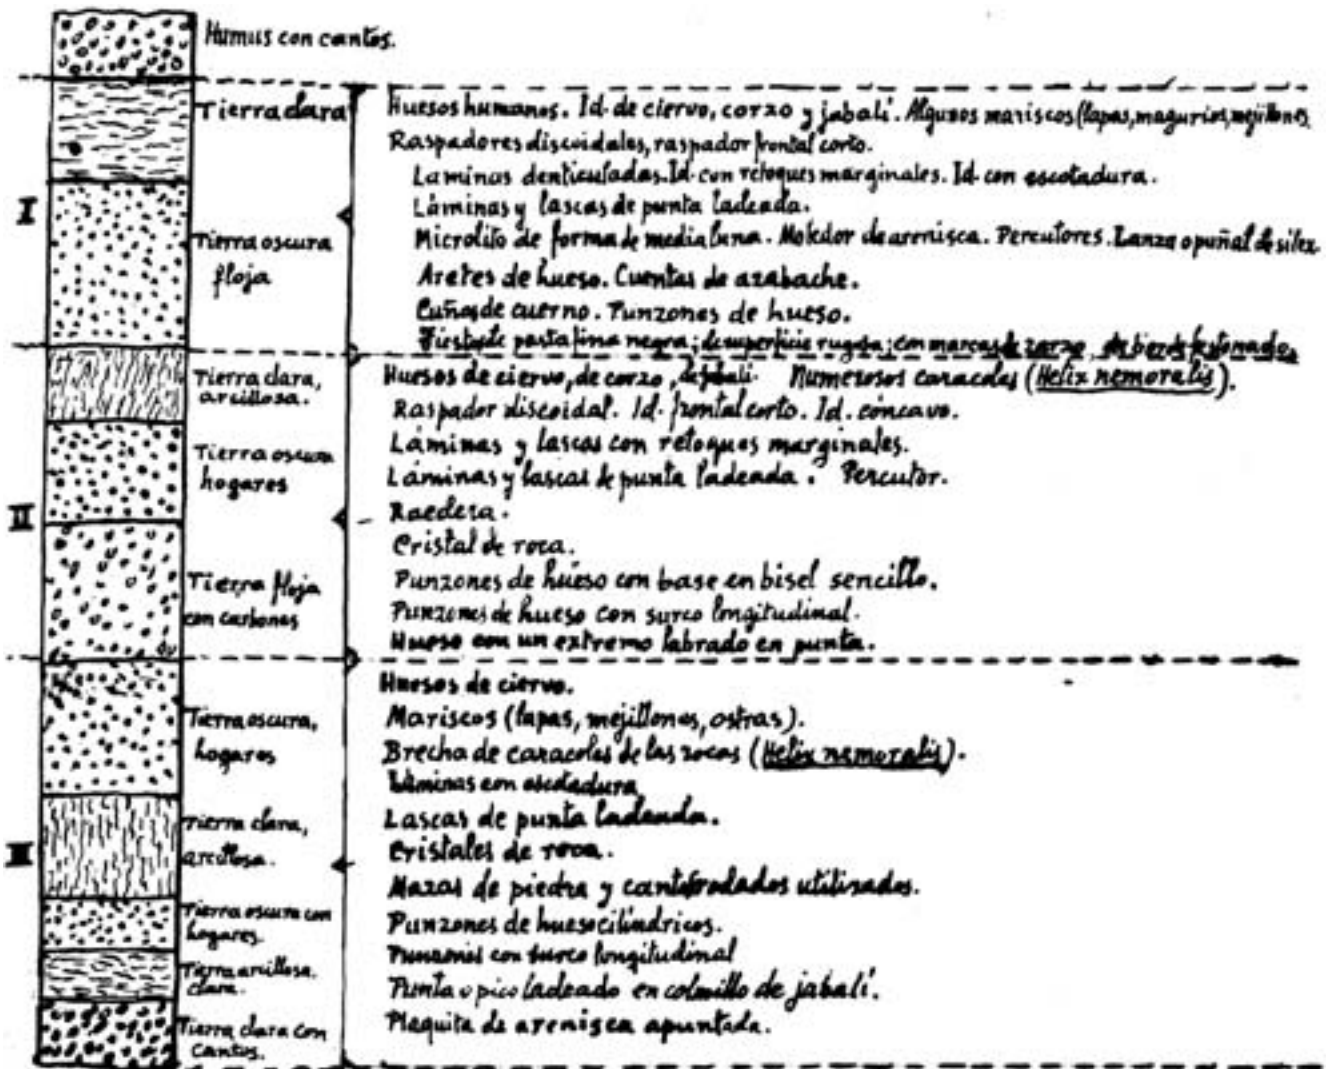 Humus con cantos.
I
Tierra clara
Tierra oscura
floja
Huesos humanos. Id. de ciervo, corzo y jabalí. Algunos mariscos (lapas, magurios, mejillones
Raspadores discoidales, raspador frontal corto.
Laminas denticuladas. Id. con retoques marginales. Id. con escotadura.
Láminas y lascas de punta ladeada.
Microlito de forma de media luna. Moledor de arenisca. Percutores. Lanza o puñal de silex
Aretes de hueso. Cuentas de azabache.
Cuñas de cuerno. Punzones de hueso.
Tiestos de pasta fina negra; de superficie rugosa; con marcas de zarzo, de borde festonado.
II
Tierra clara,
arcillosa.
Tierra oscura
hogares
Tierra floja
con carbones
Huesos de ciervo, de corzo, de jabalí. Numerosos caracoles (Helix nemoralis).
Raspador discoidal. Id. frontal corto. Id. cóncavo.
Láminas y lascas con retoques marginales.
Láminas y lascas de punta ladeada. Percutor.
Raedera.
Cristal de roca.
Punzones de hueso con base en bisel sencillo.
Punzones de hueso con surco longitudinal.
Hueso con un extremo labrado en punta.
III
Tierra oscura,
hogares
Tierra clara,
arcillosa.
Tierra oscura con
hogares.
Tierra arcillosa.
clara.
Tierra clara con
cantos.
Huesos de ciervo.
Mariscos (lapas, mejillones, ostras).
Brecha de caracoles de las rocas (Helix nemoralis).
Láminas con escotadura
Lascas de punta ladeada.
Cristales de roca.
Mazas de piedra y cantos rodados utilizados.
Punzones de hueso cilíndricos.
Punzones con surco longitudinal
Punta o pico ladeado en colmillo de jabalí.
Plaquita de arenisca apuntada.